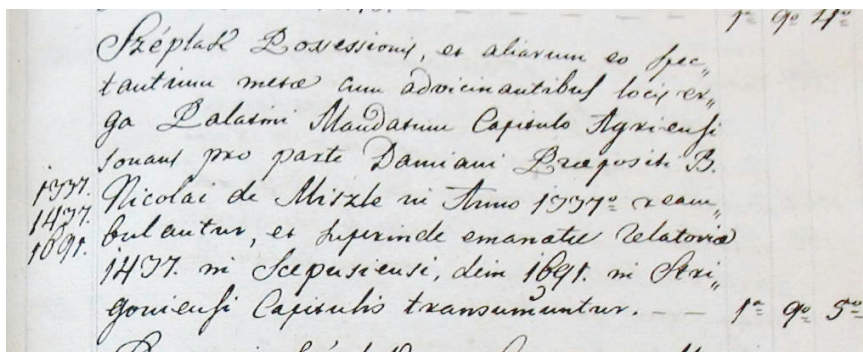 1ª 9º 4º
Széplak Possessionis, et aliarum eo spec„
tantium metæ cum advicinantibus locis er„
ga Palatini Mandatum Capitulo Agriensi
sonans pro parte Damiani Præpositi B.
1337. Nicolai de Miszle in Anno 1337º ream„
1437. bulantur, et superinde emanatæ Relatoriæ
1691. 1437. in Scepusiensi, dein 1691. in Stri„
goniensi Capitulis transumuntur. — — 1ª 9º 5º